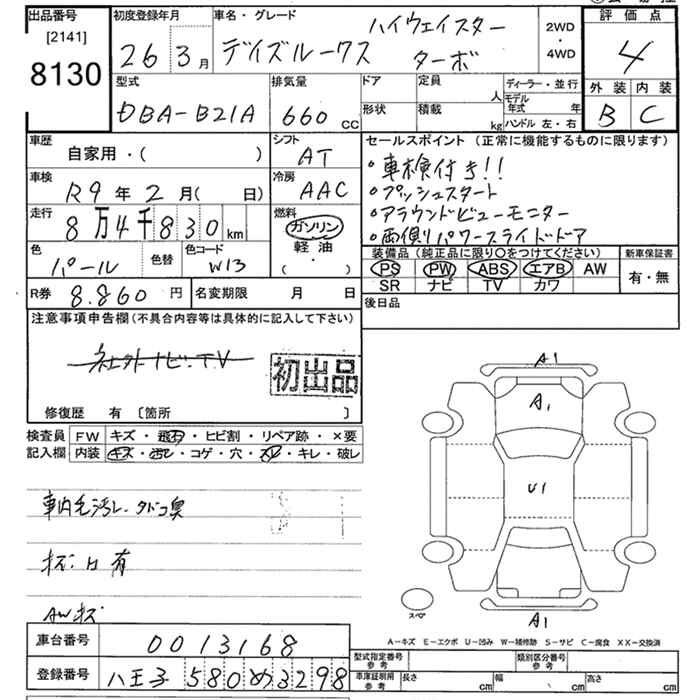 出品番号 [2141] 8130
初度登録年月 26 3月
車名・グレード ハイウェイスター
デイズルークス ターボ
2WD・4WD
評価点 4
外装 B 内装 C
型式 DBA-B21A
排気量 660 cc
ドア 定員 人
形状 積載 kg
ディーラー・並行
モデル年式 年
ハンドル 左・右
車歴 自家用・( )
シフト AT
車検 R9年2月( 日)
冷房 AAC
走行 8万4千830km
燃料 ガソリン 軽油 ( ・ )
色 パール 色替 色コード W13
R券 8.860円 名変期限 月 日
セールスポイント (正常に機能するものに限ります)
・車検付き!!
・プッシュスタート
・アラウンドビューモニター
・両側パワースライドドア
装備品(純正品に限り○をつけてください)
PS PW ABS エアB AW
SR ナビ TV カワ
新車保証書 有・無
後日品
注意事項申告欄(不具合内容等は具体的に記入して下さい)
ナビ.TV
初出品
修復歴 有 [箇所 ]
検査員記入欄
FW キズ・飛石・ヒビ割・リペア跡・×要
内装 キズ・汚レ・コゲ・穴・スレ・キレ・破レ
車内毛汚レ タバコ臭
有
AWキズ
A1
A1
U1
A1
スペア
A-キズ E-エクボ U-凹み W-補修跡 S-サビ C-腐食 XX-交換済
車台番号 0013168
登録番号 八王子 580 め 3298
型式指定番号 参考
類別区分番号 参考
車庫証明用 参考 長さ cm 幅 cm 高さ cm